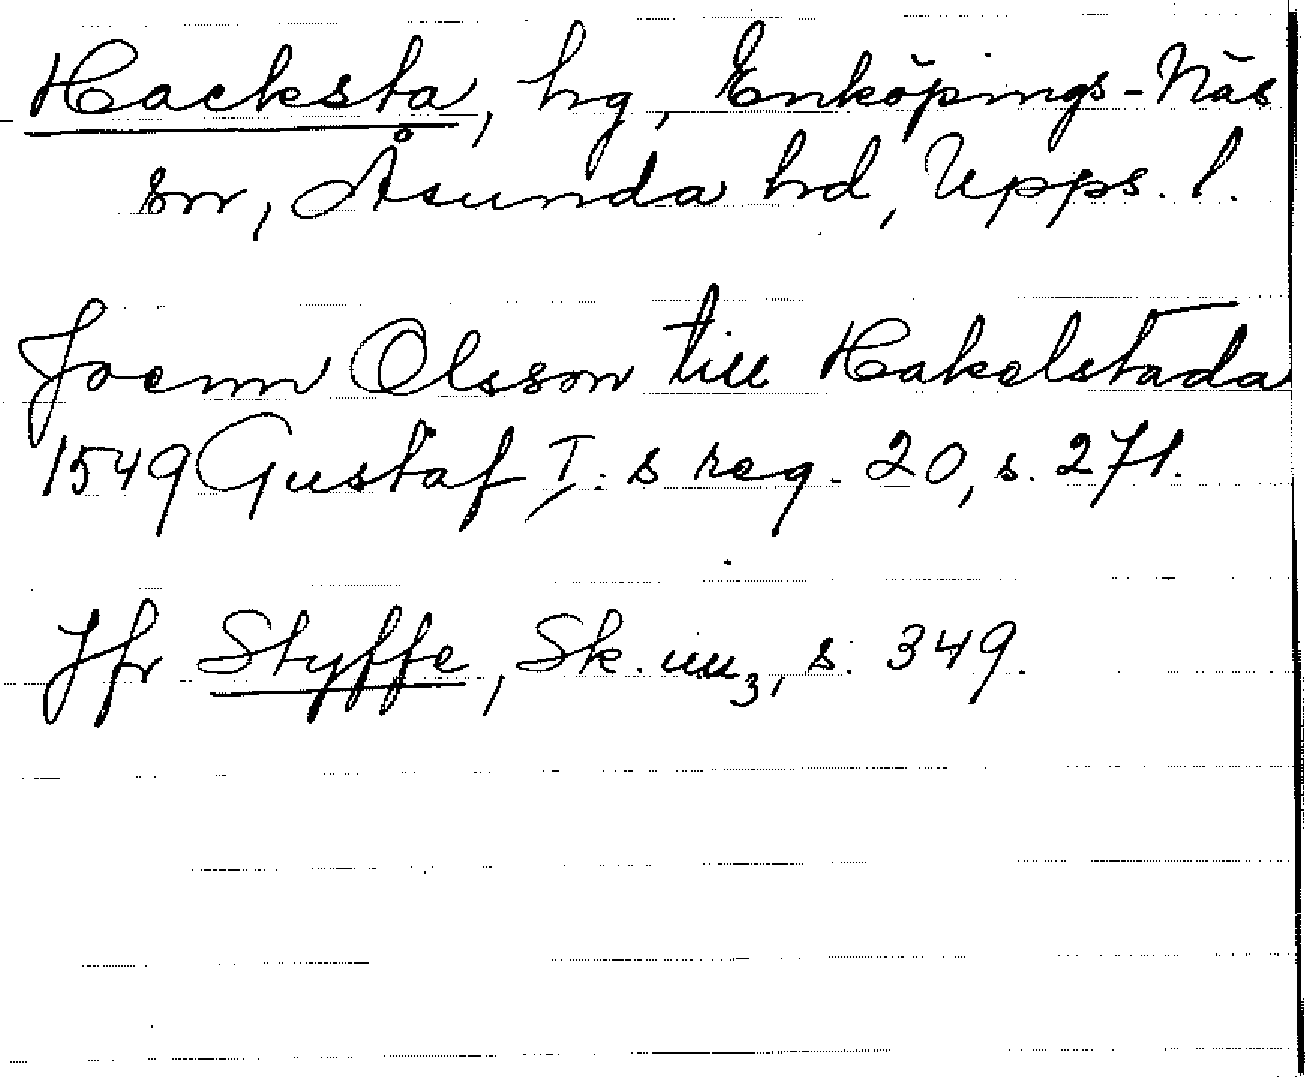 Hacksta, hg, Enköpings-Näs
sn, Åsunda hd, Upps. l.
Joenn Olsson till Hakelstada
1549 Gustaf I:s reg. 20, s. 271.
Jfr Styffe, Sk. uu3, s. 349.